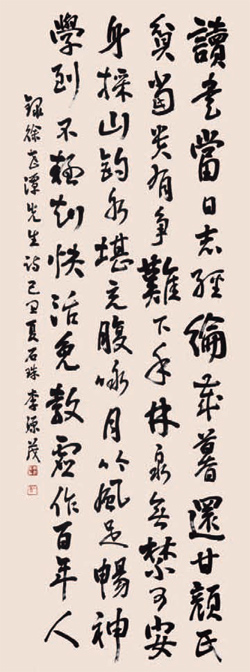 讀書當日志經綸歲暮還甘顏氏
貧富貴有爭難下手林泉無禁可安
身採山釣水堪充腹咏月吟風足暢神
學到不疑知快活免教虛作百年人
錄徐花潭先生詩己丑夏石珠李源茂